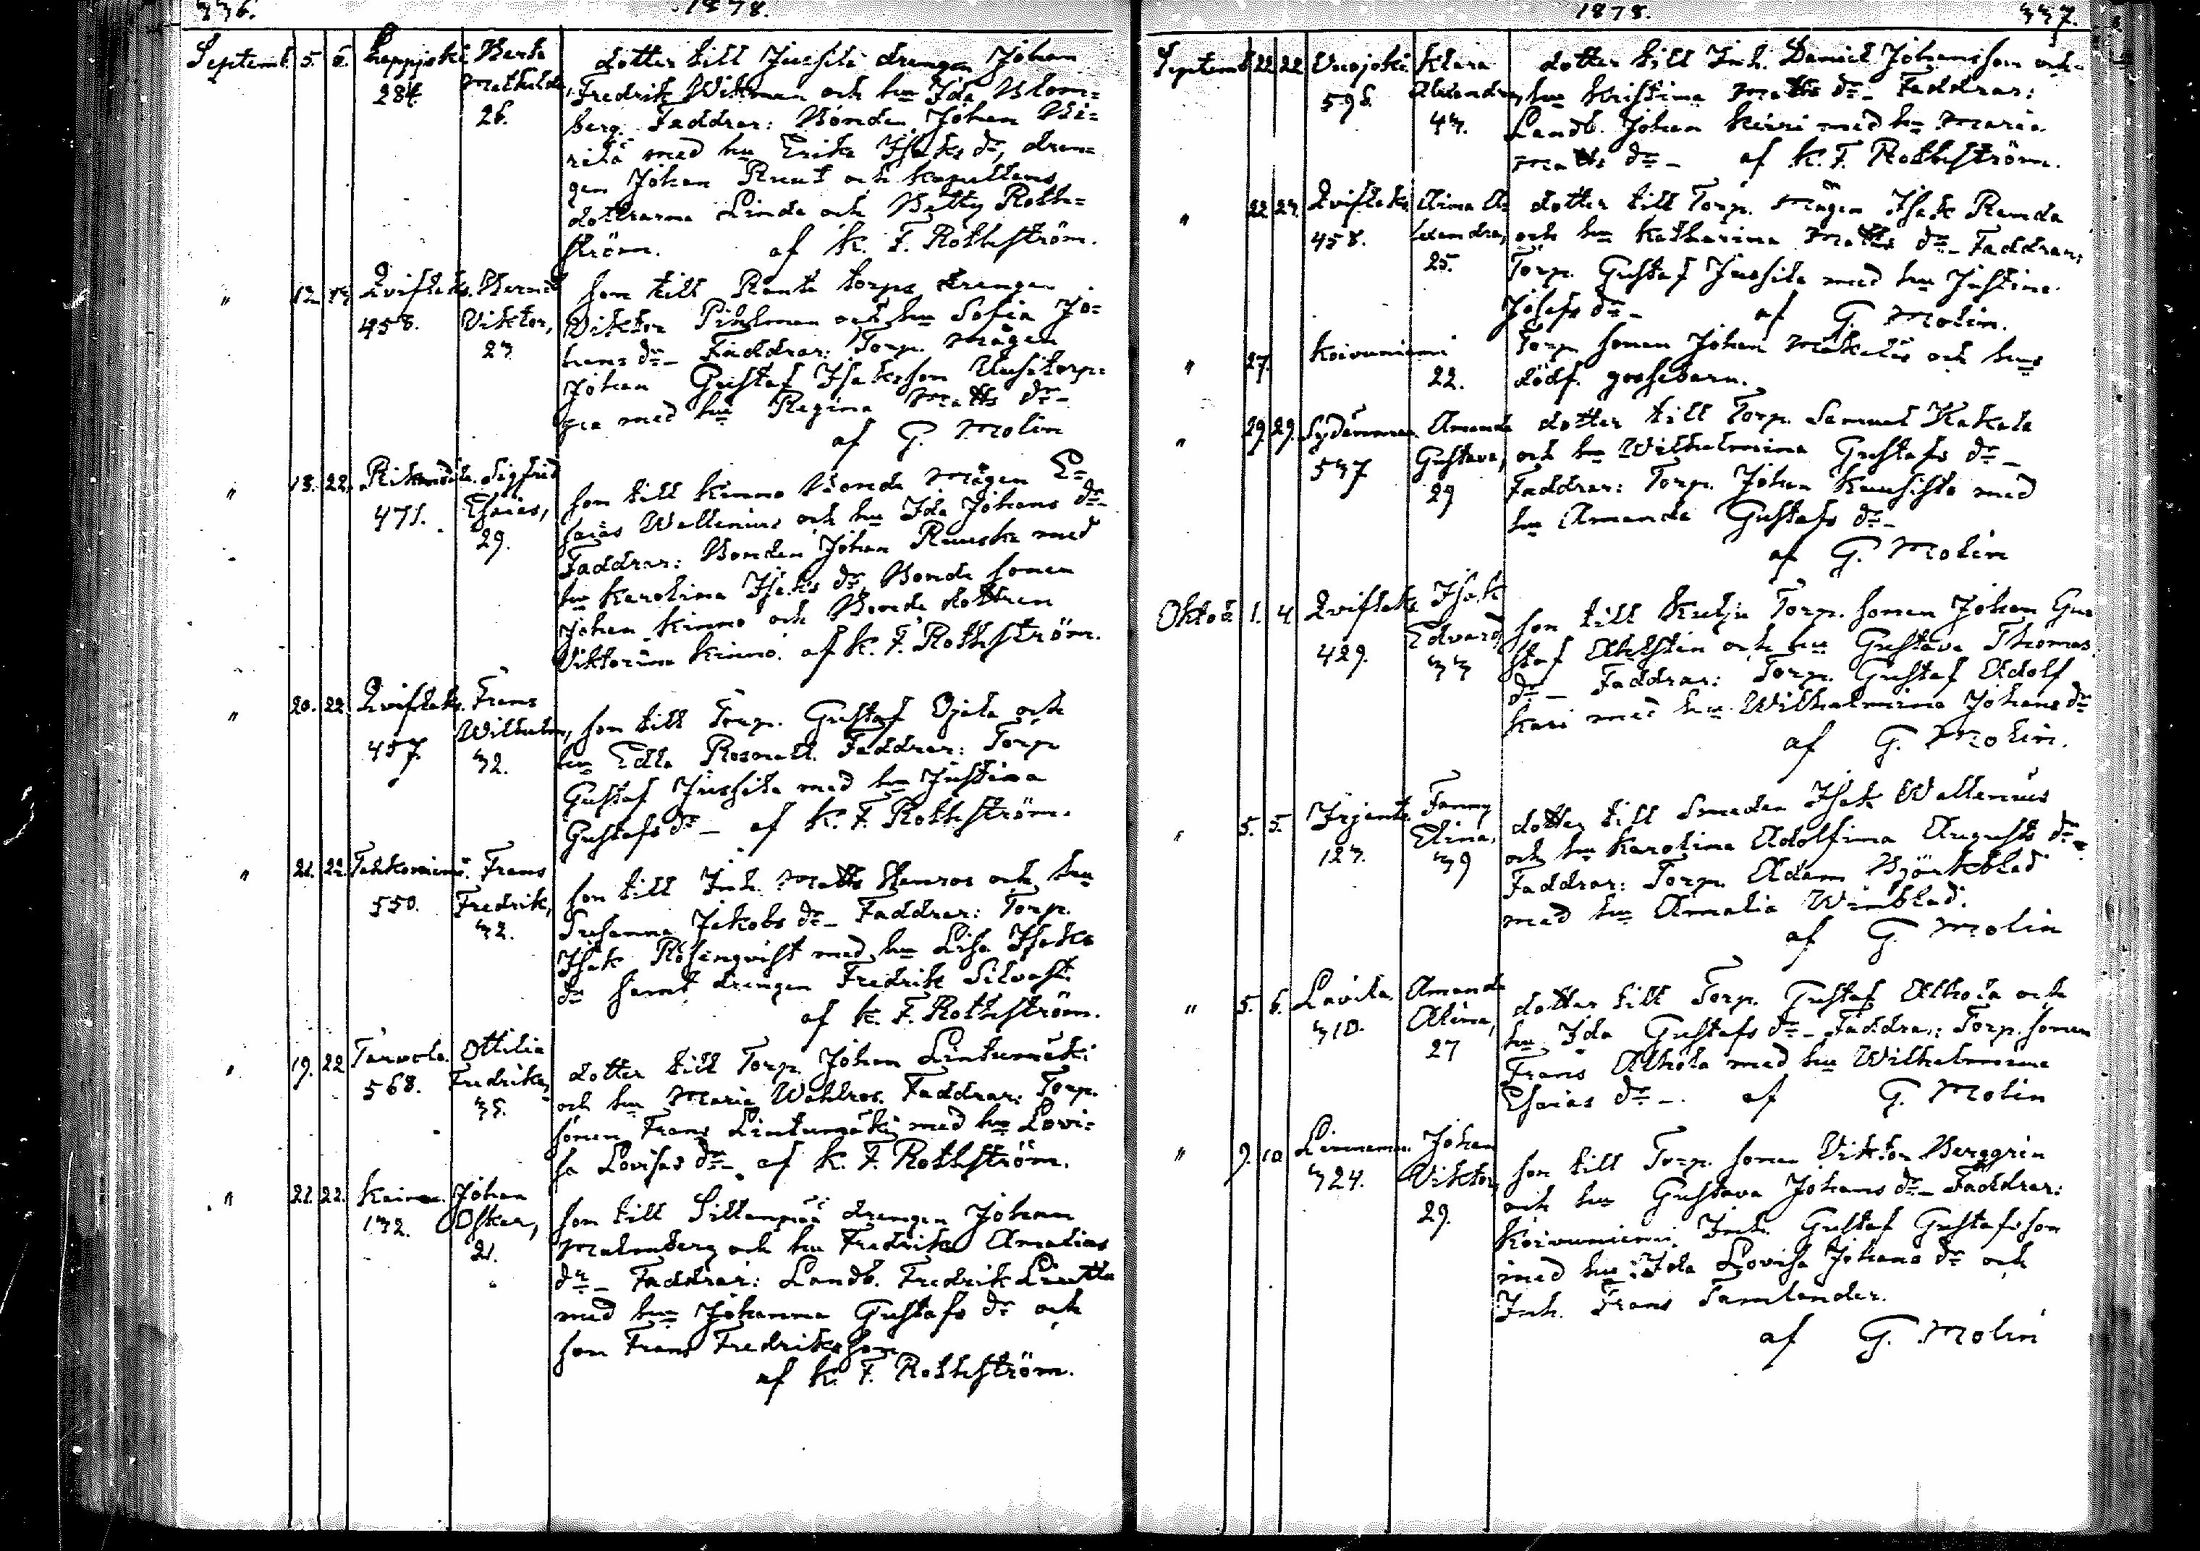 336.
1878.
Septemb. 5. 6. Leppjoki Berta
284. Mathilda,
26.
dotter till Jussila drengen Johan
Fredrik Wikman och hu Ida Blom=
berg. Faddrar: Bonden Johan
rilä med hu Erika Isaks dr, dren=
gen Johan Ruut och Kapellens
döttrarna Linda och Betty Roth=
ström. af K. F. Rothström.
" 12 Qvifleks. Bernd
458. Viktor,
23.
son till Ranta torps drengen
Viktor Pihlman och hu Sofia Jo=
hans dr_ Faddrar: Torp. mågen
Johan Gustaf Isaksson Uusitorp=
pa med hu Regina Matts dr_
af G. Molin
" 13. 22. Sigfrid
471. Esaias,
29.
son till Kinno Bonde mågen E=
saias Wallenius och hu Ida Johans dr_
Faddrar: Bonden Johan Ruuska med
hu Karolina Isaks dr, Bonde sonen
Johan Kinno och Bonde dottren
Viktorina Kinno. af K. F. Rothström.
" 20. 22. Qvifleks. Frans
457. Wilhelm,
32.
son till Torp. Gustaf Ojala och
hu Edla Rosnell. Faddrar: Torp.
Gustaf Jussila med hu Justina
Gustafs dr_ af K. F. Rothström.
" 21. 22. Tahkoniemi. Frans
550. Fredrik,
32.
son till Inh. Matts Stenros och hu
Susanna Jakobs dr_ Faddrar: Torp.
Isak Rosenqvist med hu Lisa Isaks
dr samt drengen Fredrik Silvast.
af K. F. Rothström.
" 19. 22. Tarvola. Ottilia
568. Fredrika,
35.
dotter till Torp. Johan Lintumäki
och hu Maria Wahlros. Faddrar: Torp.
sonen Frans Lintumäki med hu Lovi=
sa Lovisas dr_ af K. F. Rothström.
" 22. 22. Johan
132. Oskar,
21.
son till Sillanpää drengen Johan
Malmberg och hu Fredrika Amalias
dr_ Faddrar: Landb. Fredrik
med hu Johanna Gustafs dr och
son Frans Fredriksson
af K. F. Rothström.
1878.
337.
Septemb. 22 22 Vuojoki. Klara
598. Alexandra,
43.
dotter till Inh. Daniel Johansson och
hu Kristina Matts dr_ Faddrar:
Landb. Johan Kivri med hu Maria
Matts dr_ af K. F. Rothström.
" 22 23. Qvifleks. Alma A=
458. lexandra,
25.
dotter till Torp. mågen Isak Randa
och hu Katharina Matts dr_ Faddrar:
Torp. Gustaf Jussila med hu Justina
Josefs dr_ af G. Molin.
" 27. Koivuniemi
22.
Torp. sonen Johan Mäkeläs och hus
dödf. gossebarn.
" 29 29. Sydänmaa. Amanda
537 Gustava,
29
dotter till Torp. Samuel Kakala
och hu Wilhelmina Gustafs dr_
Faddrar: Torp. Johan Kuusisto med
hu Amanda Gustafs dr_
af G. Molin
Oktob. 1. 4. Qvifleks. Isak
429. Edvard,
33
son till Kulju Torp. sonen Johan Gu=
staf Ahlstin och hu Gustava Thomas
dr_ Faddrar: Torp. Gustaf Adolf
Kari med hu Wilhelmina Johans dr
af G. Molin.
" 5. 5. Irjanti. Fanny
123. Elina,
39
dotter till Smeden Isak Wallenius
och hu Karolina Adolfina Augusts dr_
Faddrar: Torp. Adam Björkblad
med hu Amalia Winblad.
af G. Molin
" 5. 6. Lavila. Amanda
310. Alina,
27
dotter till Torp. Gustaf Alhola och
hu Ida Gustafs dr_ Faddra.: Torp. sonen
Frans Alhola med hu Wilhelmina
Esaias dr_. af G. Molin
" 9. 10. Linnamaa. Johan
324. Viktor,
29.
son till Torp. sonen Viktor Berggrén
och hu Gustava Johans dr_ Faddrar:
Koivuniemi Inh. Gustaf Gustafsson
med hu Ida Lovisa Johans dr och
Inh. Frans Tamlander.
af G. Molin